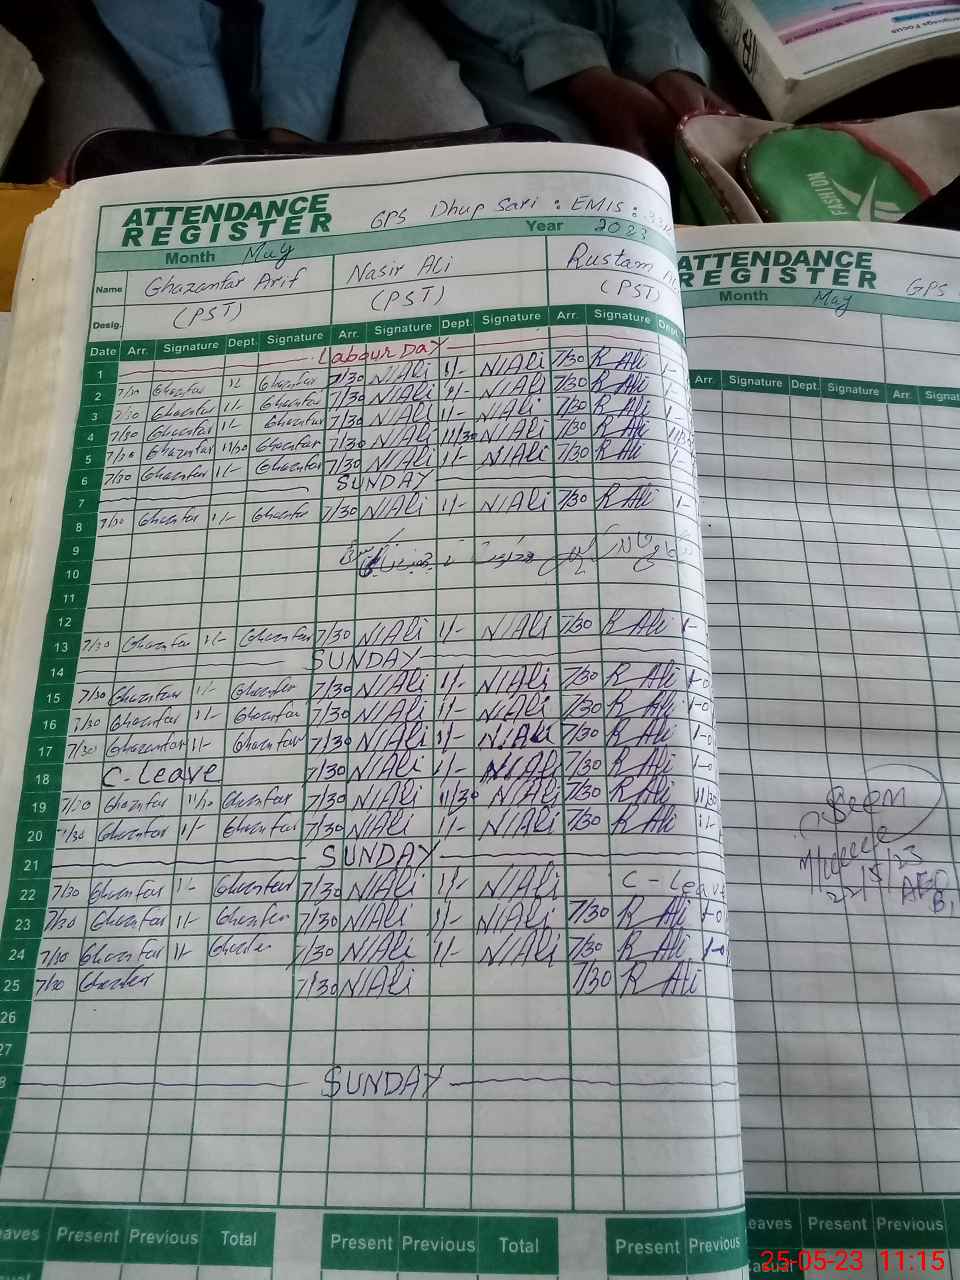 Language Focus
FASHION
ATTENDANCE REGISTER GPS Dhup Sari : EMIS :
Month May Year 2023
Name Ghazanfar Arif Nasir Ali Rustam
Desig. (PST) (PST) (PST)
Date Arr. Signature Dept. Signature Arr. Signature Dept. Signature Arr. Signature Dept.
1 Labour Day
2 7/30 Ghazanfar 1/- Ghazanfar 7/30 N/Ali 1/- N/Ali 7/30 R Ali 1-
3 7/30 Ghazanfar 1/- Ghazanfar 7/30 N/Ali 1/- N/Ali 7/30 R Ali 1-
4 7/30 Ghazanfar 1/- Ghazanfar 7/30 N/Ali 1/- N/Ali 7/30 R Ali 1-
5 7/30 Ghazanfar 11/30 Ghazanfar 7/30 N/Ali 11/30 N/Ali 7/30 R Ali 11/30
6 7/30 Ghazanfar 1/- Ghazanfar 7/30 N/Ali 1/- N/Ali 7/30 R Ali 1-
7 SUNDAY
8 7/30 Ghazanfar 1/- Ghazanfar 7/30 N/Ali 1/- N/Ali 7/30 R Ali 1-
9
10
11
12
13 7/30 Ghazanfar 1/- Ghazanfar 7/30 N/Ali 1/- N/Ali 7/30 R Ali 1-
14 SUNDAY
15 7/30 Ghazanfar 1/- Ghazanfar 7/30 N/Ali 1/- N/Ali 7/30 R Ali 1-0
16 7/30 Ghazanfar 1/- Ghazanfar 7/30 N/Ali 1/- N/Ali 7/30 R Ali 1-0
17 7/30 Ghazanfar 1/- Ghazanfar 7/30 N/Ali 1/- N/Ali 7/30 R Ali 1-0
18 C-Leave 7/30 N/Ali 1/- N/Ali 7/30 R Ali 1-0
19 7/30 Ghazanfar 11/30 Ghazanfar 7/30 N/Ali 11/30 N/Ali 7/30 R Ali 11/30
20 7/30 Ghazanfar 1/- Ghazanfar 7/30 N/Ali 1/- N/Ali 7/30 R Ali 1/-
21 SUNDAY
22 7/30 Ghazanfar 1/- Ghazanfar 7/30 N/Ali 1/- N/Ali C-Leave
23 7/30 Ghazanfar 1/- Ghazanfar 7/30 N/Ali 1/- N/Ali 7/30 R Ali 1-0
24 7/30 Ghazanfar 1/- Ghazanfar 7/30 N/Ali 1/- N/Ali 7/30 R Ali 1-0
25 7/30 Ghazanfar 7/30 N/Ali 7/30 R Ali
26
27
8 SUNDAY
eaves Present Previous Total Present Previous Total Present Previous
ATTENDANCE REGISTER
Month May GPS
Arr. Signature Dept. Signature Arr. Signat
Seen
22/5/23
AEO
eaves Present Previous
asual
25-05-23 11:15